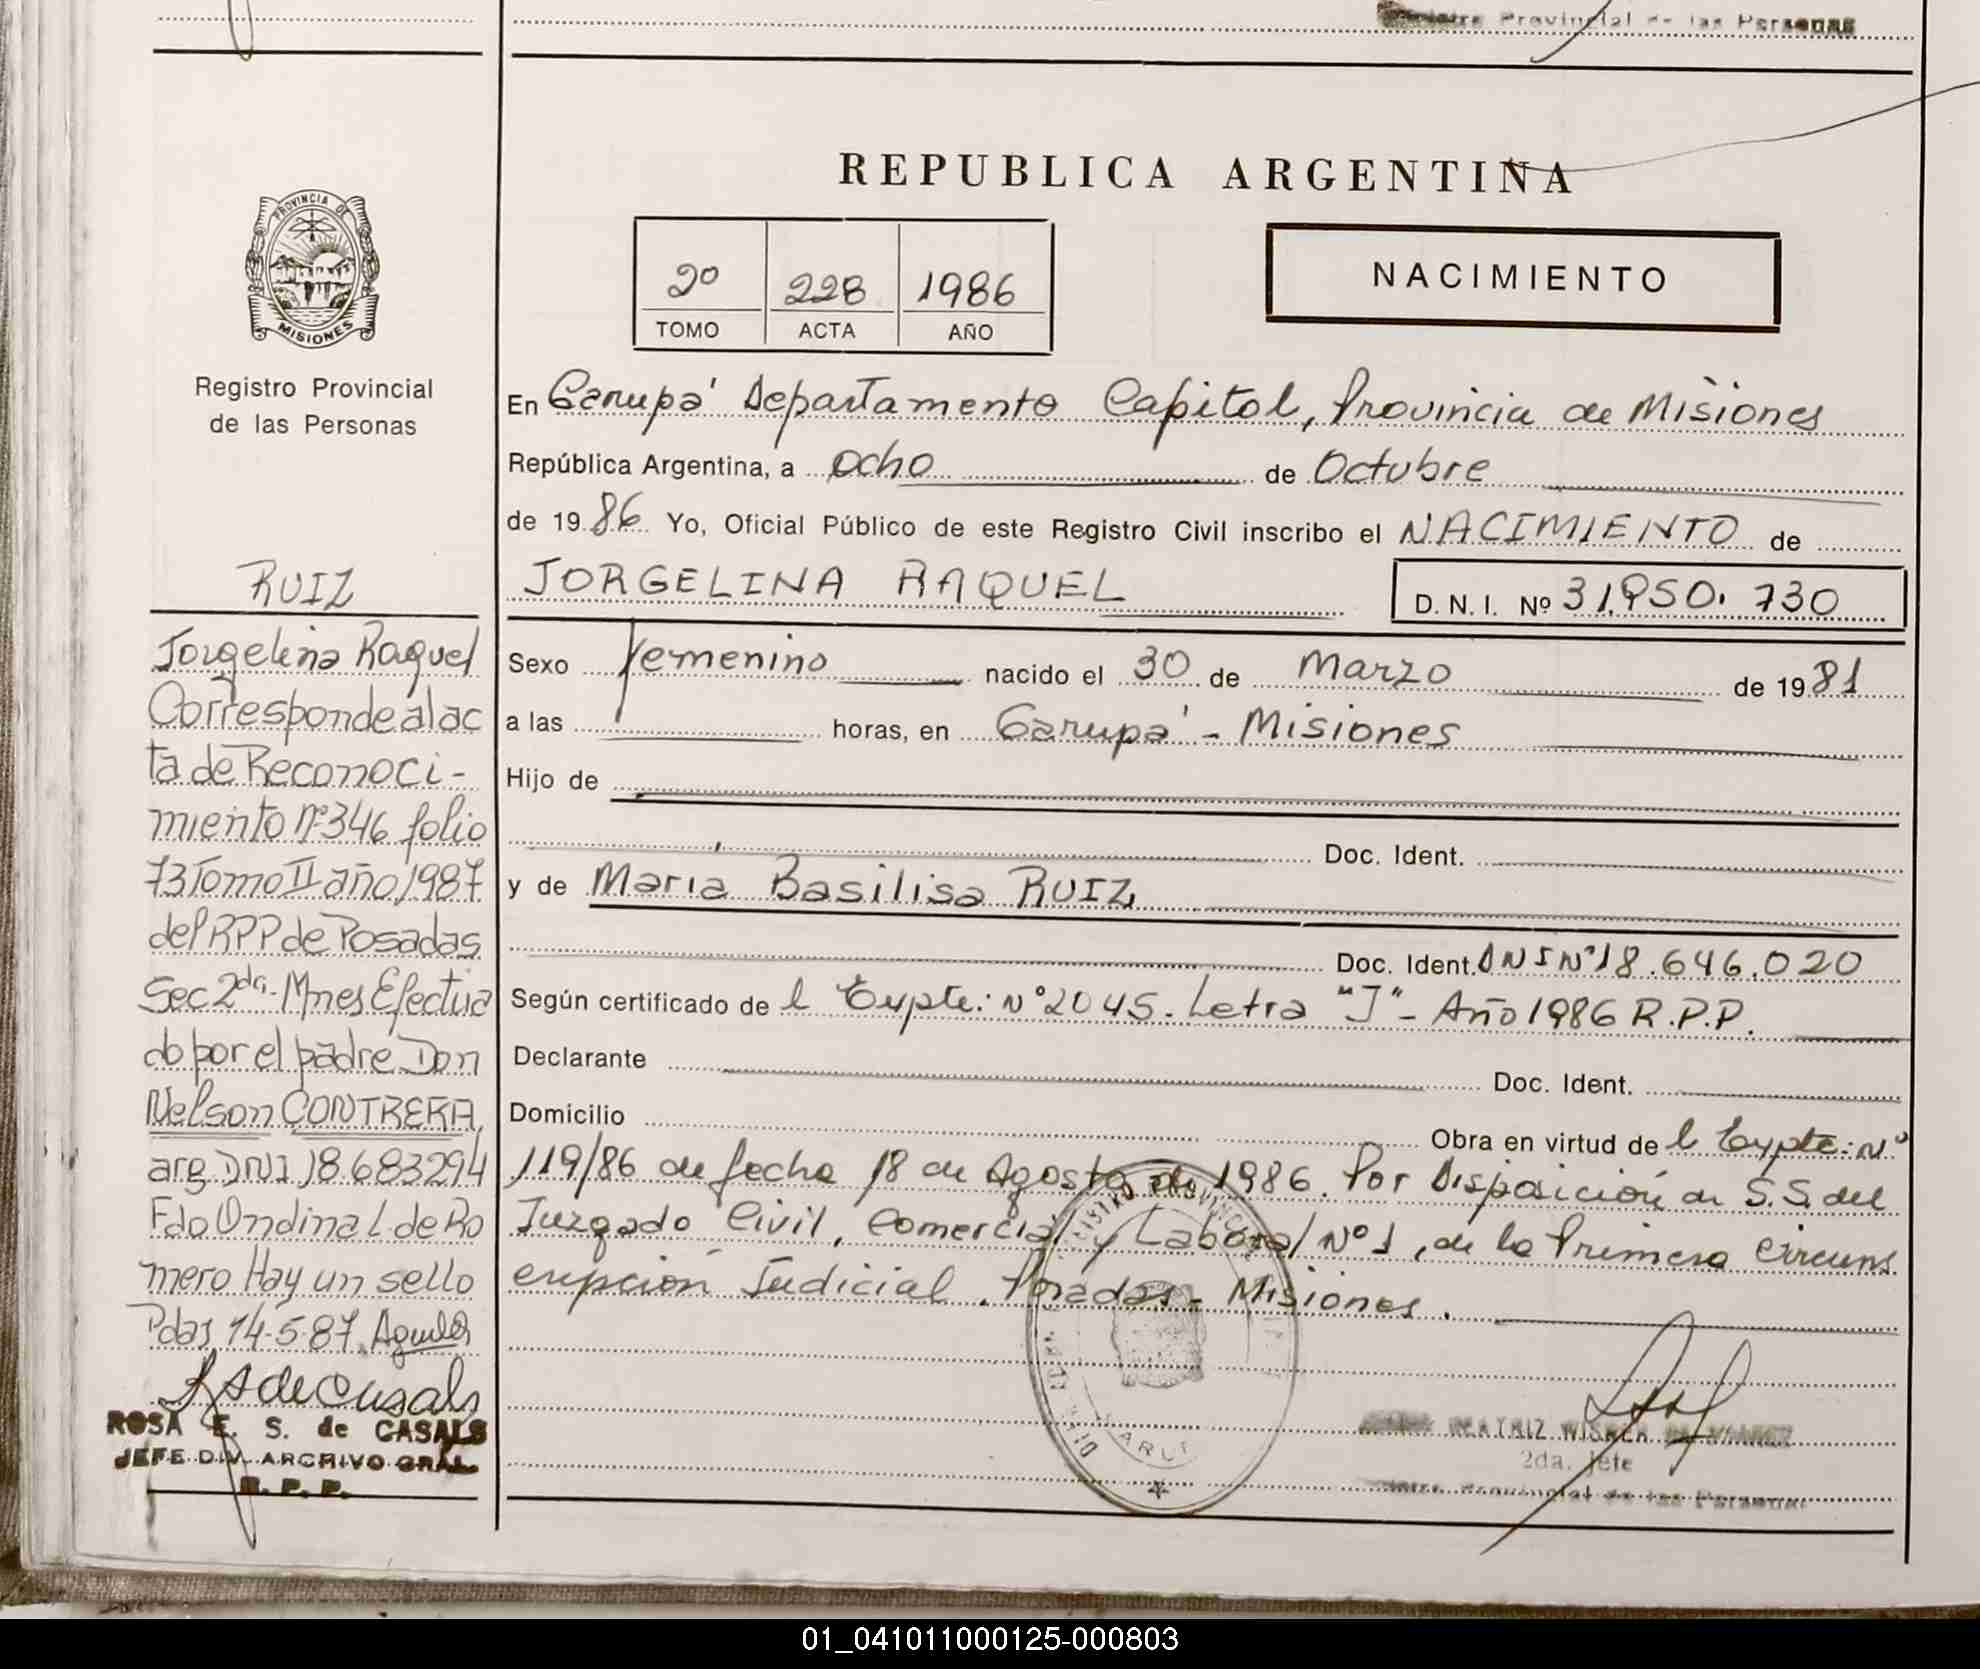 Provincial de las Personas
REPUBLICA ARGENTINA
PROVINCIA DE
MISIONES
Registro Provincial
de las Personas
2º 228 1986
TOMO ACTA AÑO
NACIMIENTO
En Garupá Departamento Capital, Provincia de Misiones
República Argentina, a ocho de Octubre
de 1986 Yo, Oficial Público de este Registro Civil inscribo el NACIMIENTO de
JORGELINA RAQUEL D. N. I. Nº 31.950.730
Sexo Femenino nacido el 30 de Marzo de 1981
a las horas, en Garupá - Misiones
Hijo de
Doc. Ident.
y de María Basilisa RUIZ
Doc. Ident. DNI Nº 18.646.020
Según certificado de l Expte: Nº 2045. Letra "J" - Año 1986 R.P.P.
Declarante Doc. Ident.
Domicilio Obra en virtud de l Expte: Nº
119/86 de fecha 18 de Agosto de 1986. Por Disposición de S.S. del
Juzgado Civil, Comercial y Laboral Nº 1, de la Primera Circuns
cripción Judicial. Posadas - Misiones.
RUIZ
Jorgelina Raquel
Corresponde al ac
ta de Reconoci-
miento Nº 346 folio
73 Tomo II año 1987
del RPP de Posadas
Sec 2da. Mnes Efectua
do por el padre Don
Nelson CONTRERA,
arg. DNI 18.683294
Fdo Ondina L. de Ro
mero Hay un sello
Pdas 14-5-87. Aguiler
R S de Casals
ROSA E. S. de CASALS
JEFE DIV. ARCHIVO GRAL.
R. P. P.
BEATRIZ
2da. Jefe
Provincial de las Personas
01_041011000125-000803